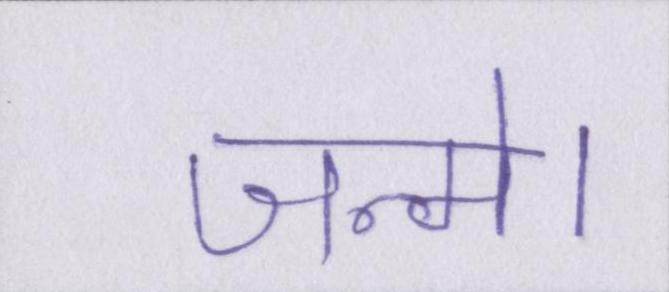 जन्मे।